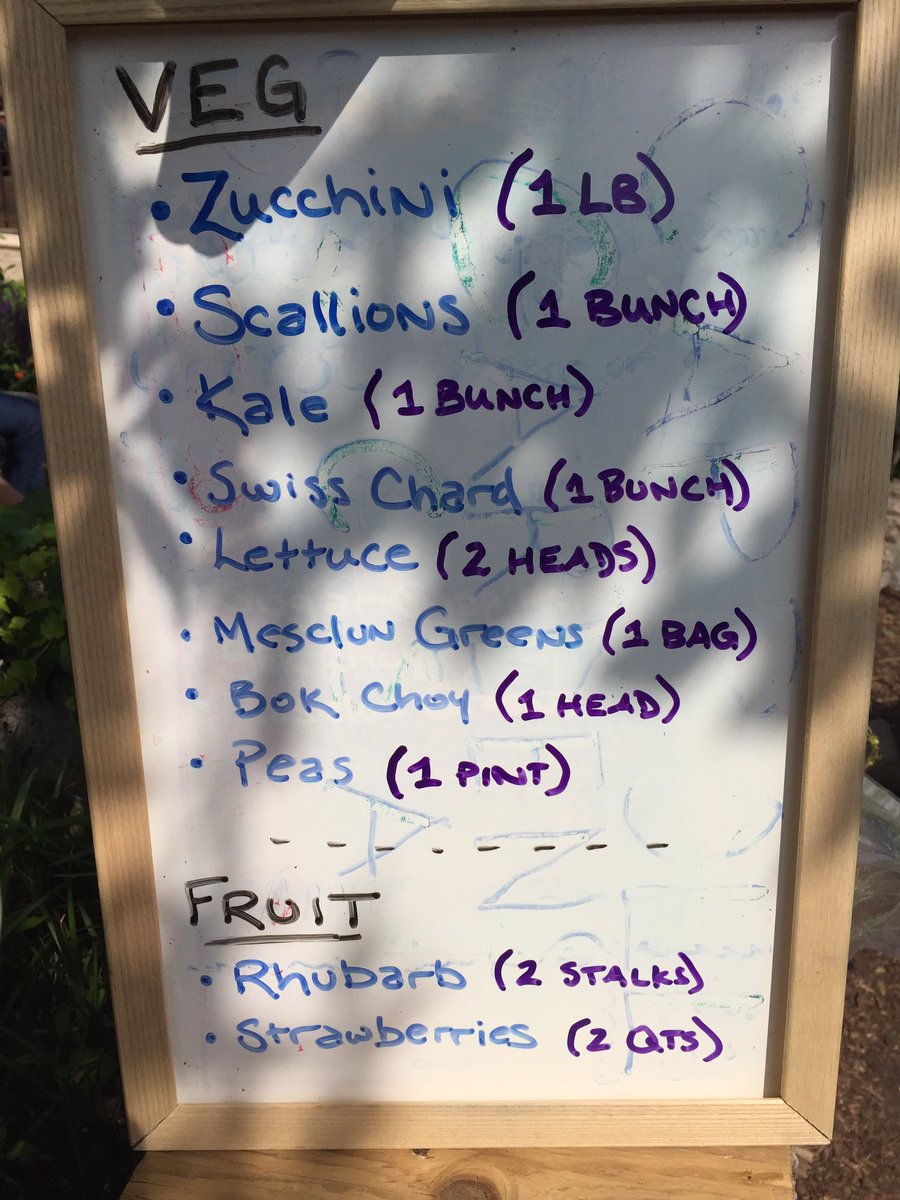 VEG
• Zucchini (1 LB)
• Scallions (1 BUNCH)
• Kale (1 BUNCH)
• Swiss Chard (1 BUNCH)
• Lettuce (2 HEADS)
• Mesclun Greens (1 BAG)
• Bok Choy (1 HEAD)
• Peas (1 PINT)
--------
FRUIT
• Rhubarb (2 STALKS)
• Strawberries (2 QTS)